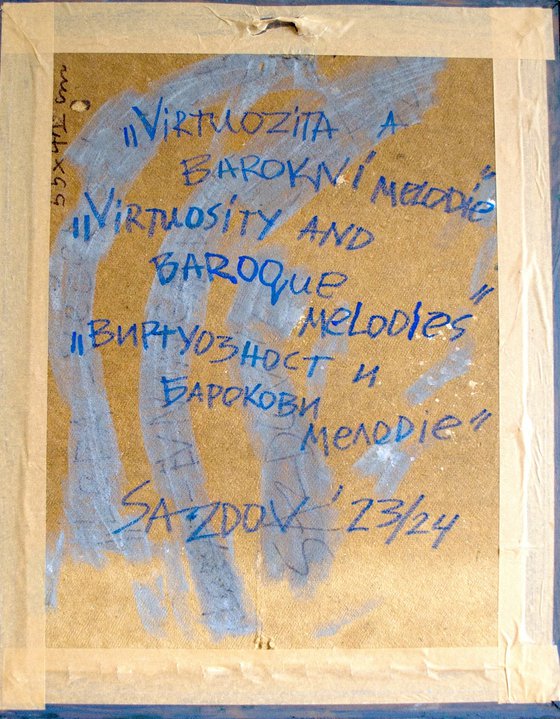 55x41 cm
„VIRTUOZITA A
BAROKNÍ MELODIE"
„VIRTUOSITY AND
BAROQUE
MELODIES"
„ВИРТУОЗНОСТ И
БАРОКОВИ
МЕЛОDIE"
SAZDOV '23/24